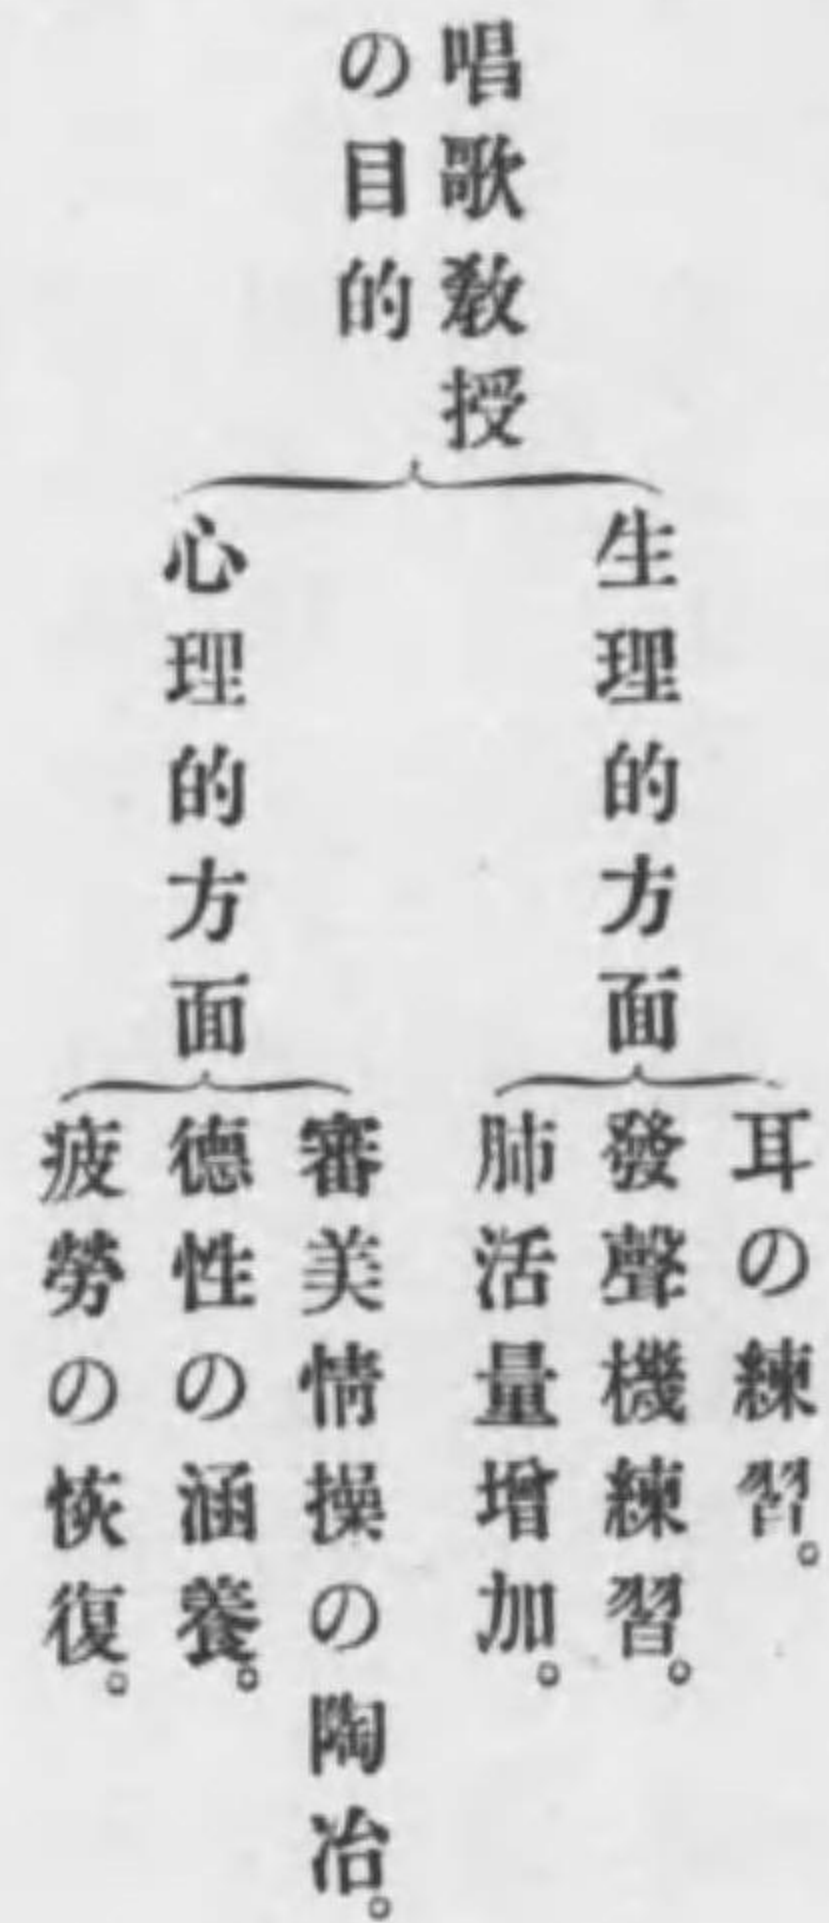 唱歌敎授
の目的
生理的方面
耳の練習。
發聲機練習。
肺活量增加。
心理的方面
審美情操の陶冶。
德性の涵養。
疲勞の恢復。